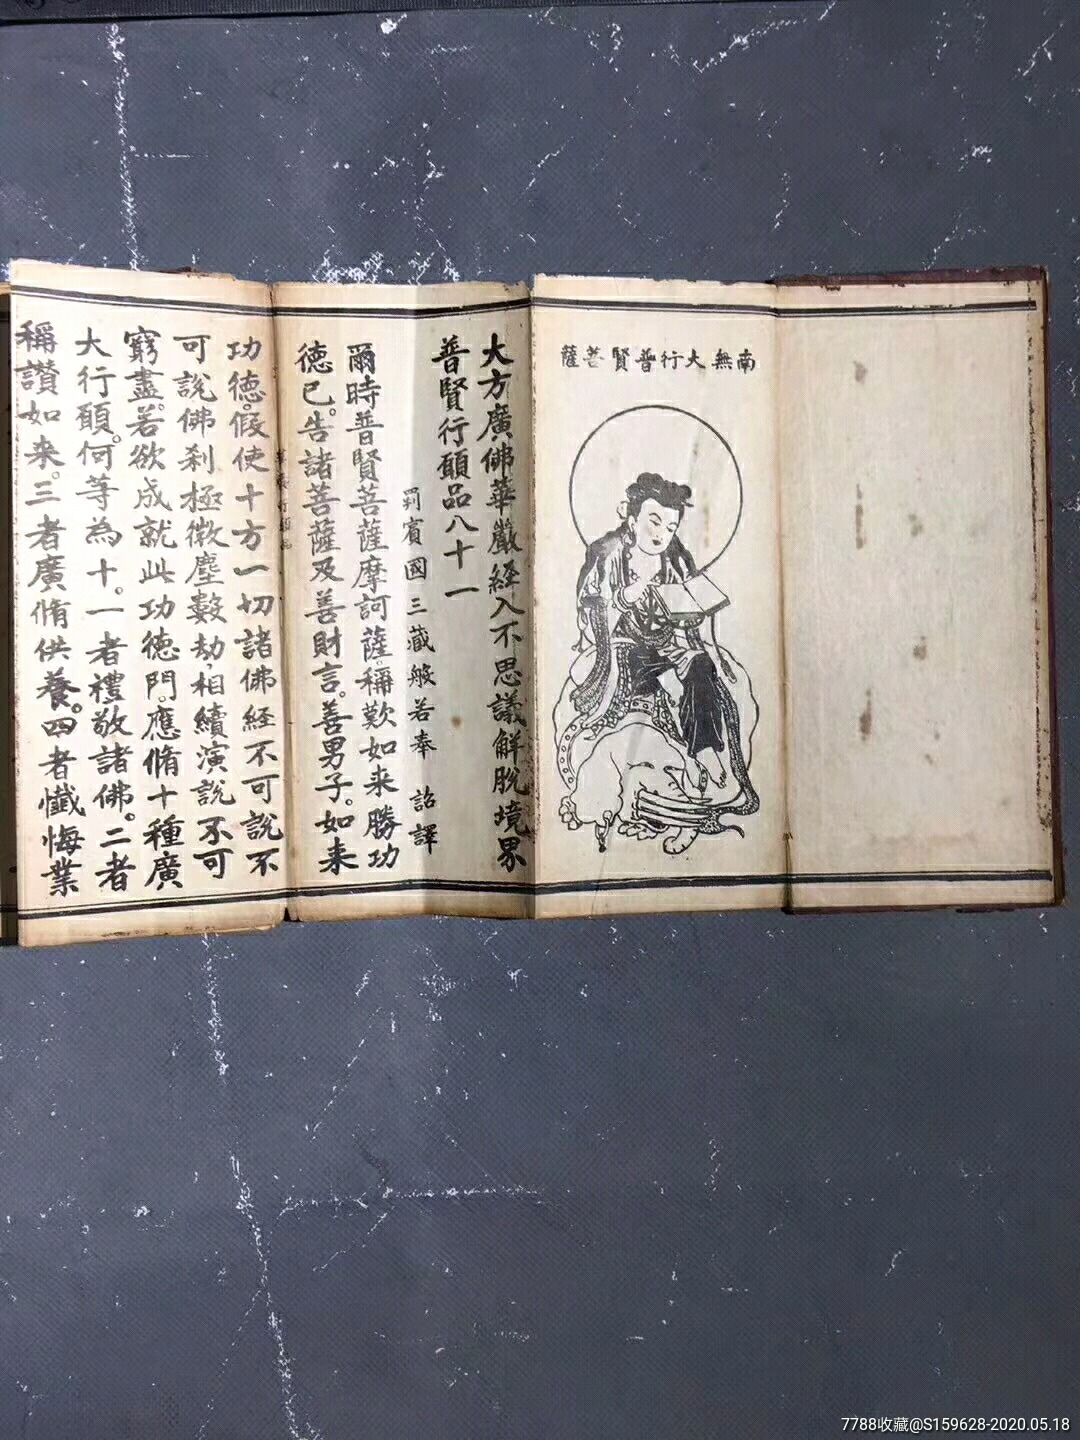 南無大行普賢菩薩
大方廣佛華嚴經入不思議解脫境界
普賢行願品八十一
罽賓國三藏般若奉 詔譯
爾時普賢菩薩摩訶薩。稱歎如来勝功
德已。告諸菩薩及善財言。善男子。如来
功德。假使十方一切諸佛経不可說不
可說佛剎極微塵數劫。相續演說不可
窮盡。若欲成就此功德門。應脩十種廣
大行願。何等為十。一者禮敬諸佛。二者
稱讚如来。三者廣脩供養。四者懺悔業
7788收藏@S159628-2020.05.18